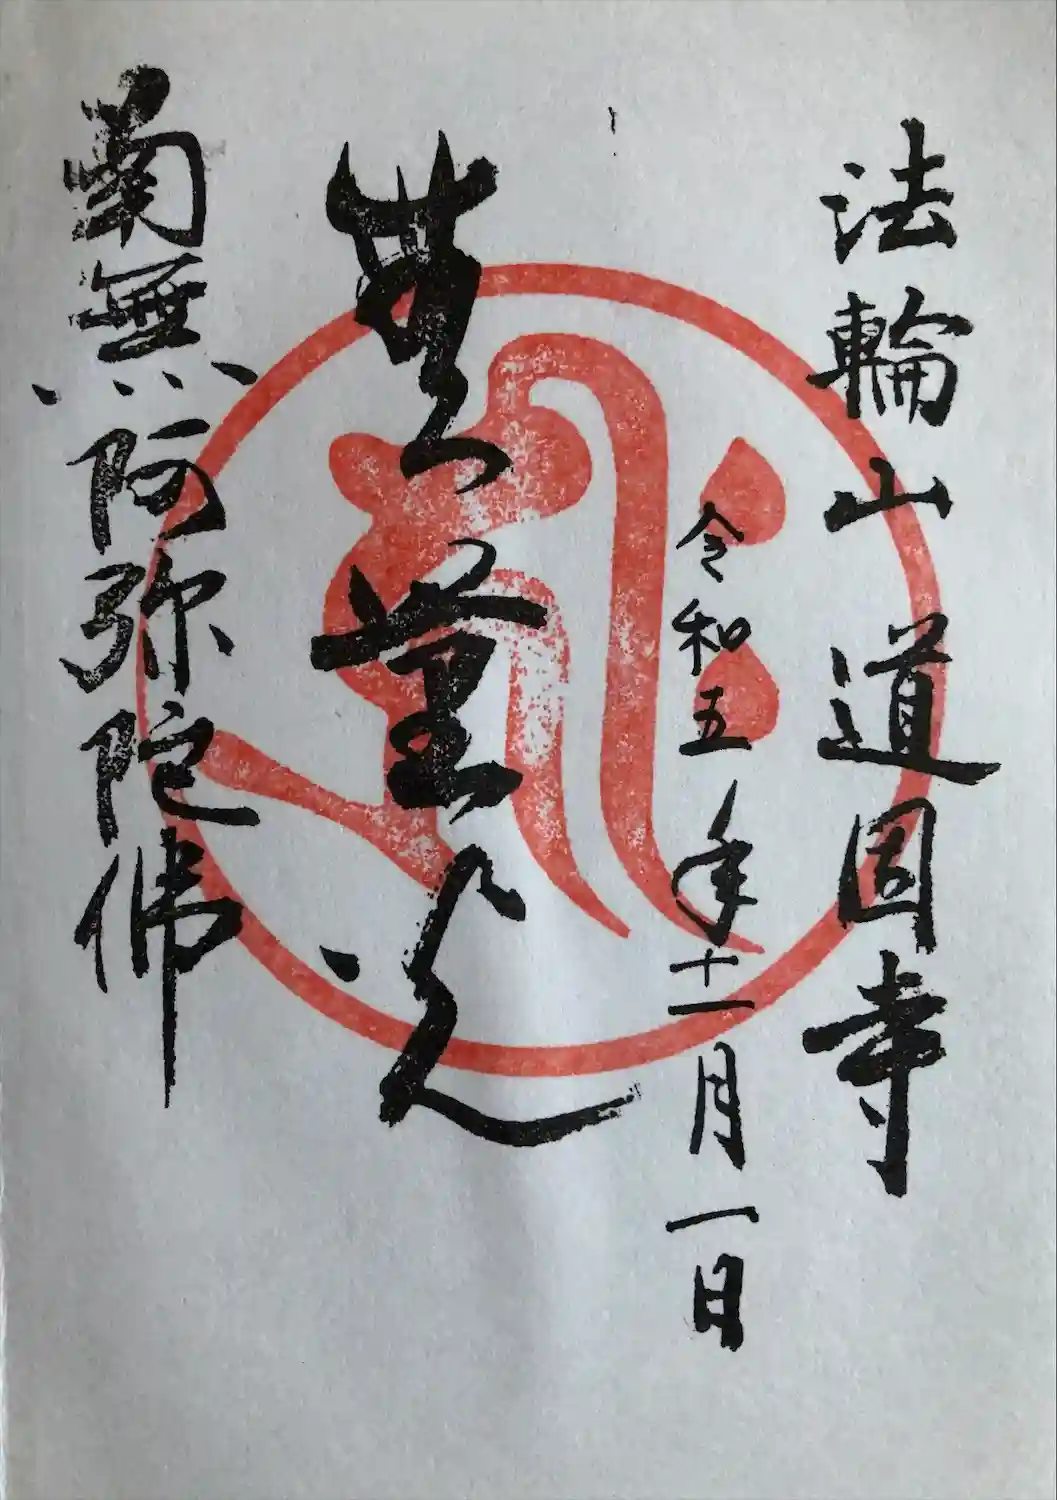 法輪山 道 寺
令和五年十一月一日
無量光
南無阿弥陀佛